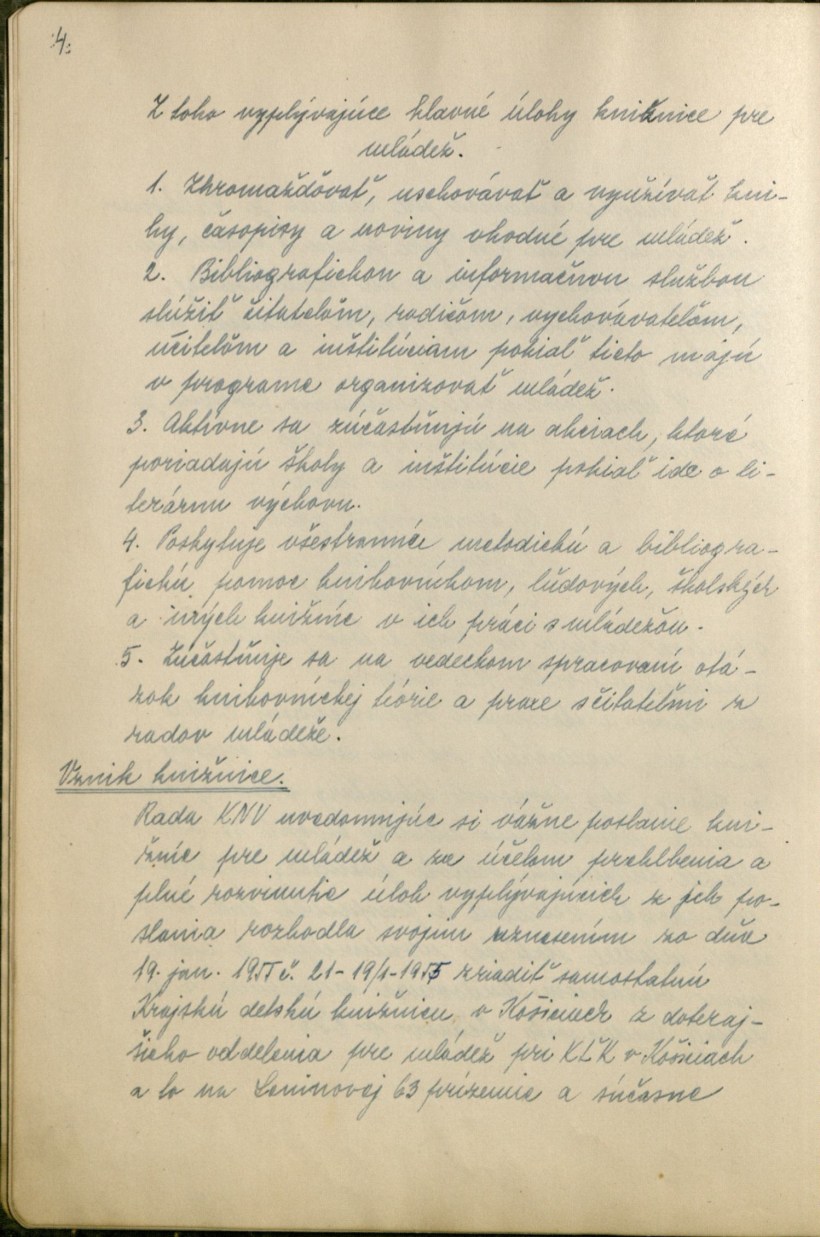 :4:
Z toho vyplývajúce hlavné úlohy knižnice pre
mládež.
1. Zhromažďovať, uschovávať a využívať kni-
hy, časopisy a noviny vhodné pre mládež.
2. Bibliografickou a informačnou službou
slúžiť čitateľom, rodičom, vychovávateľom,
učiteľom a inštitúciam pokiaľ tieto majú
v programe organizovať mládež.
3. Aktívne sa zúčastňujú na akciach, ktoré
poriadajú školy a inštitúcie pokiaľ ide o li-
terárnu výchovu.
4. Poskytuje všestrannú metodickú a bibliogra-
fickú pomoc knihovníkom, ľudových, školských
a iných knižníc v ich práci s mládežou.
5. Zúčastňuje sa na vedeckom spracovaní otá-
zok knihovníckej téorie a praxe s čitateľmi z
radov mládeže.
Vznik knižnice.
Rada KNV uvedomujúc si vážne poslanie kni-
žníc pre mládež a za účelom prehlbenia a
plné rozvinutie úloh vyplývajúcich z jeh po-
slania rozhodla svojim uznesením zo dňa
19. jan. 1955 č. 21-19/1-1955 zriadiť samostatnú
Krajskú detskú knižnicu v Košiciach z doteraj-
šieho oddelenia pre mládež pri KĽK v Košiciach
a to na Leninovej 63 prízemie a súčasne